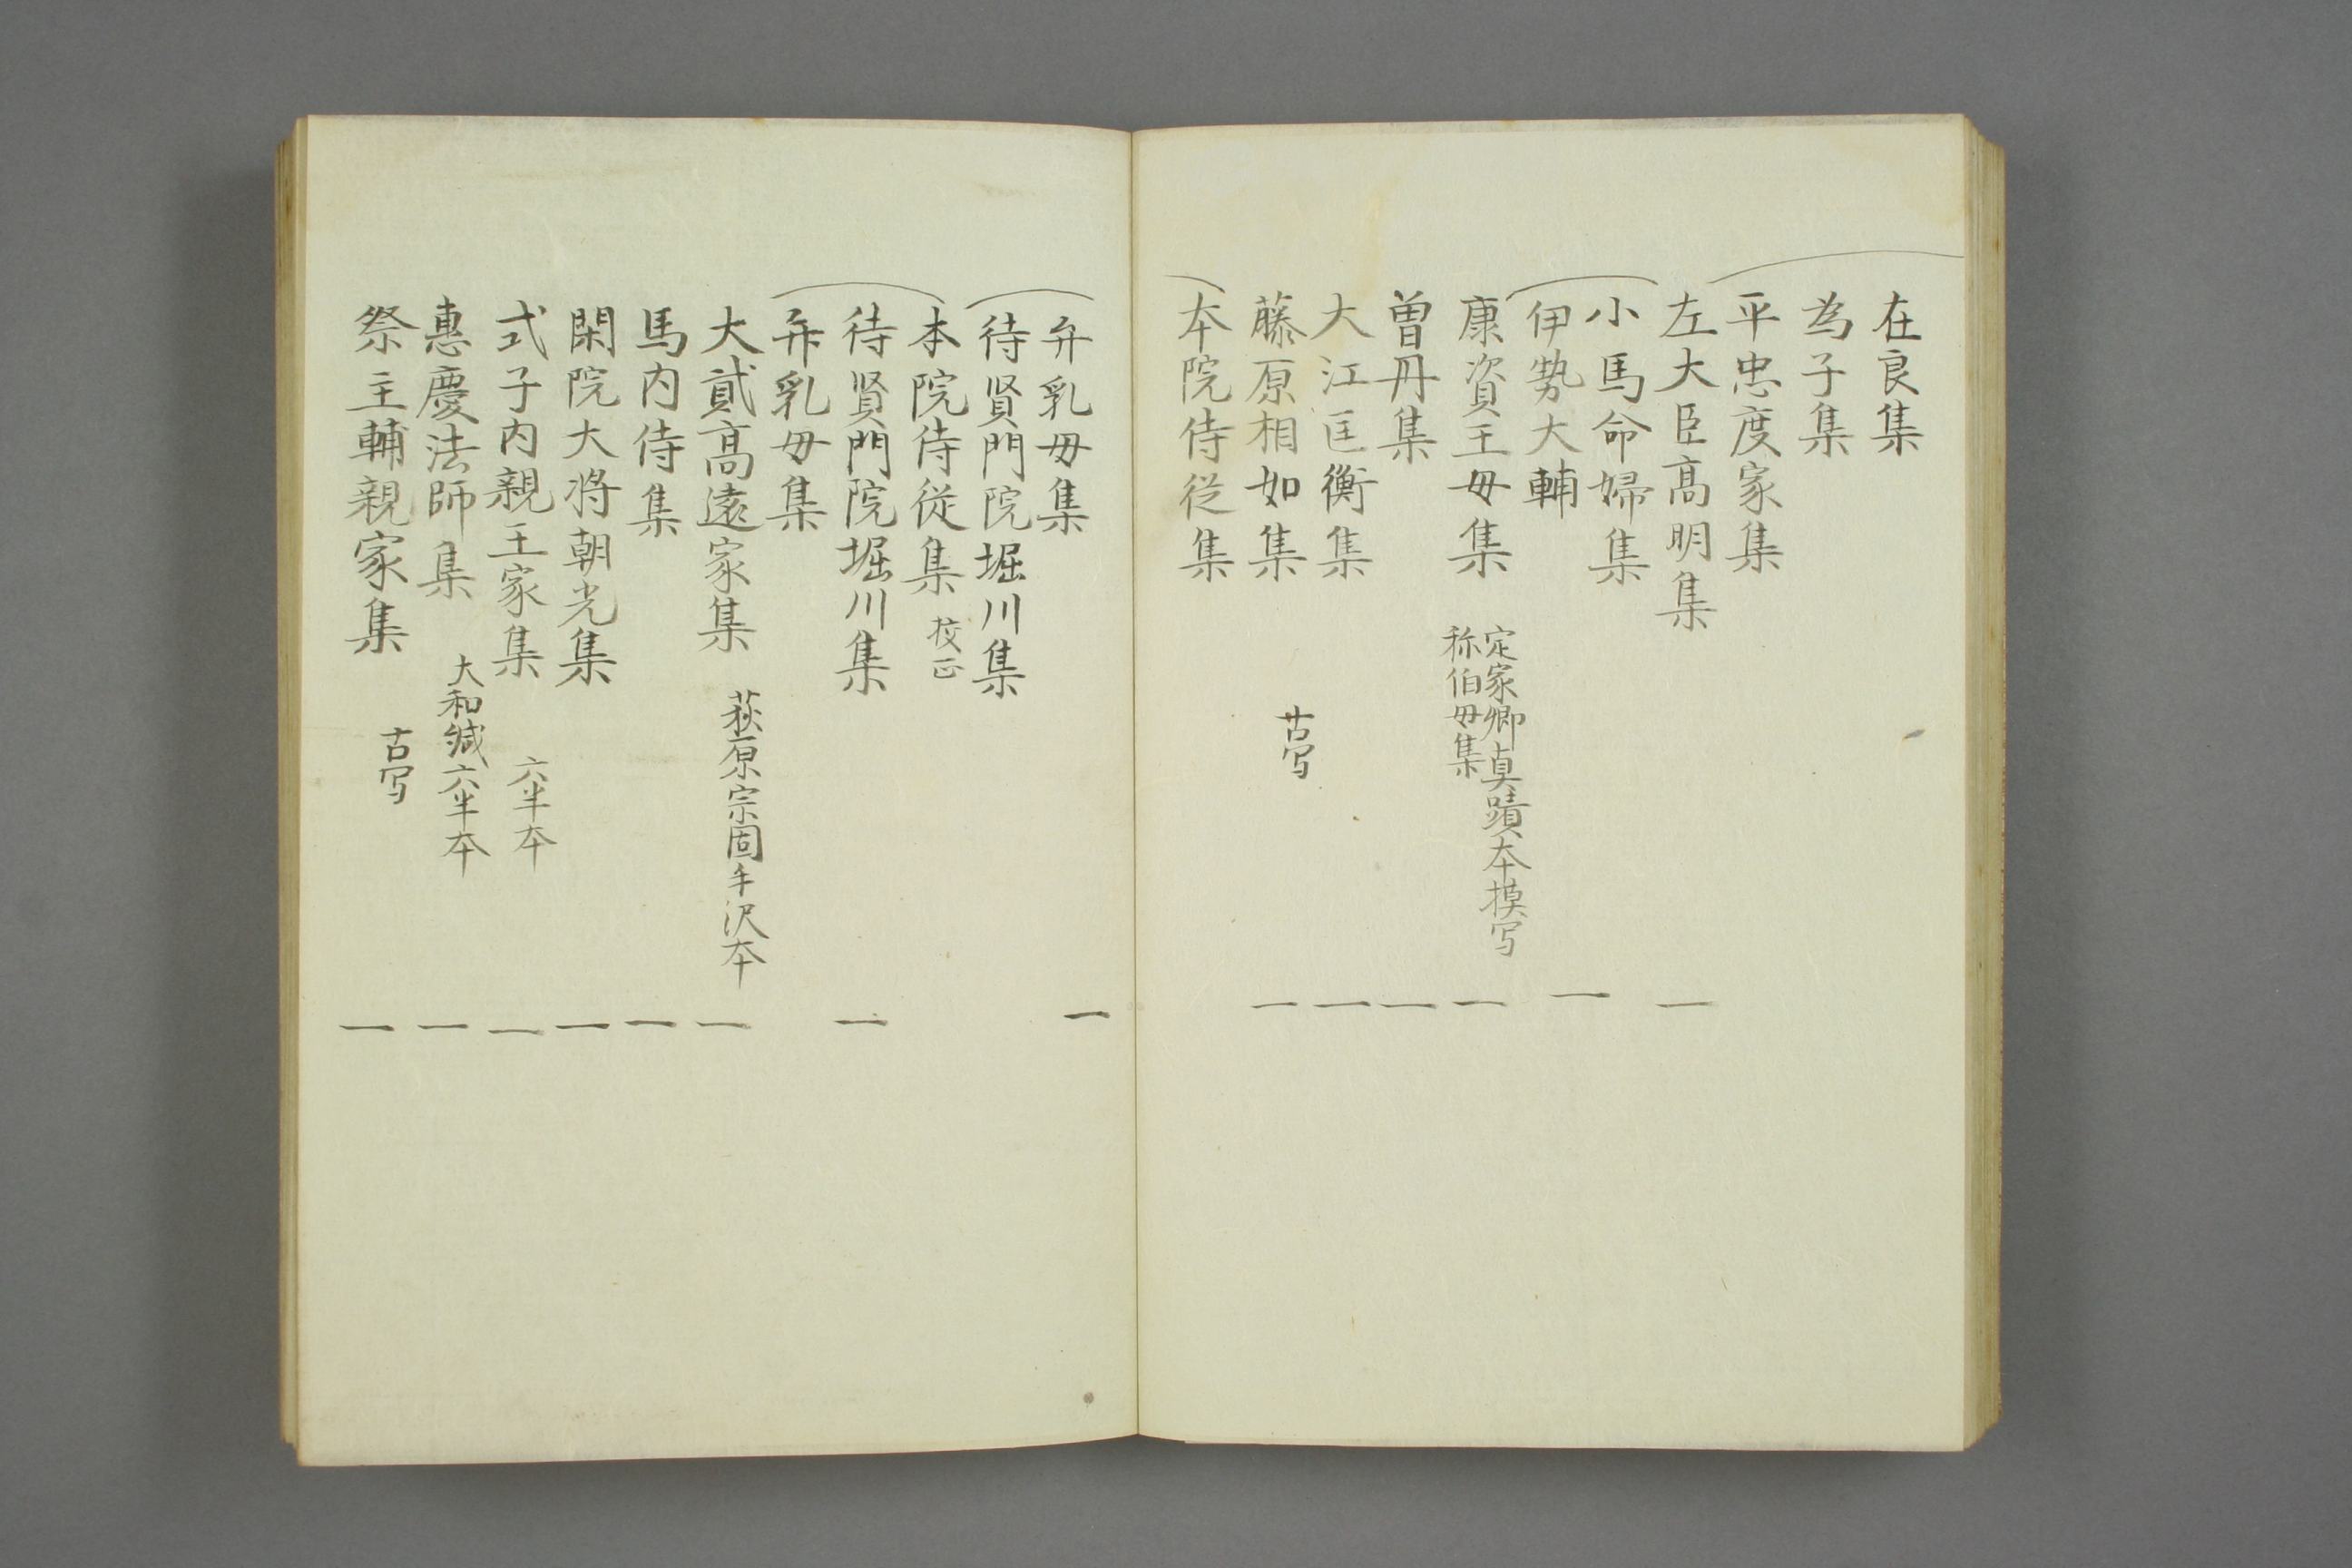 在良集
為子集
平忠度家集
左大臣高明集 一
小馬命婦集
伊勢大輔 一
康資王母集 定家卿真蹟本摸写 一
称伯母集
曽丹集 一
大江匡衡集 一
藤原相如集 古写 一
本院侍従集
弁乳母集 一
待賢門院堀川集
本院侍従集 校正
待賢門院堀川集 一
弁乳母集
大貳高遠家集 萩原宗固手沢本 一
馬内侍集 一
閑院大将朝光集 一
式子内親王家集 六半本 一
恵慶法師集 大和綴六半本 一
祭主輔親家集 古写 一